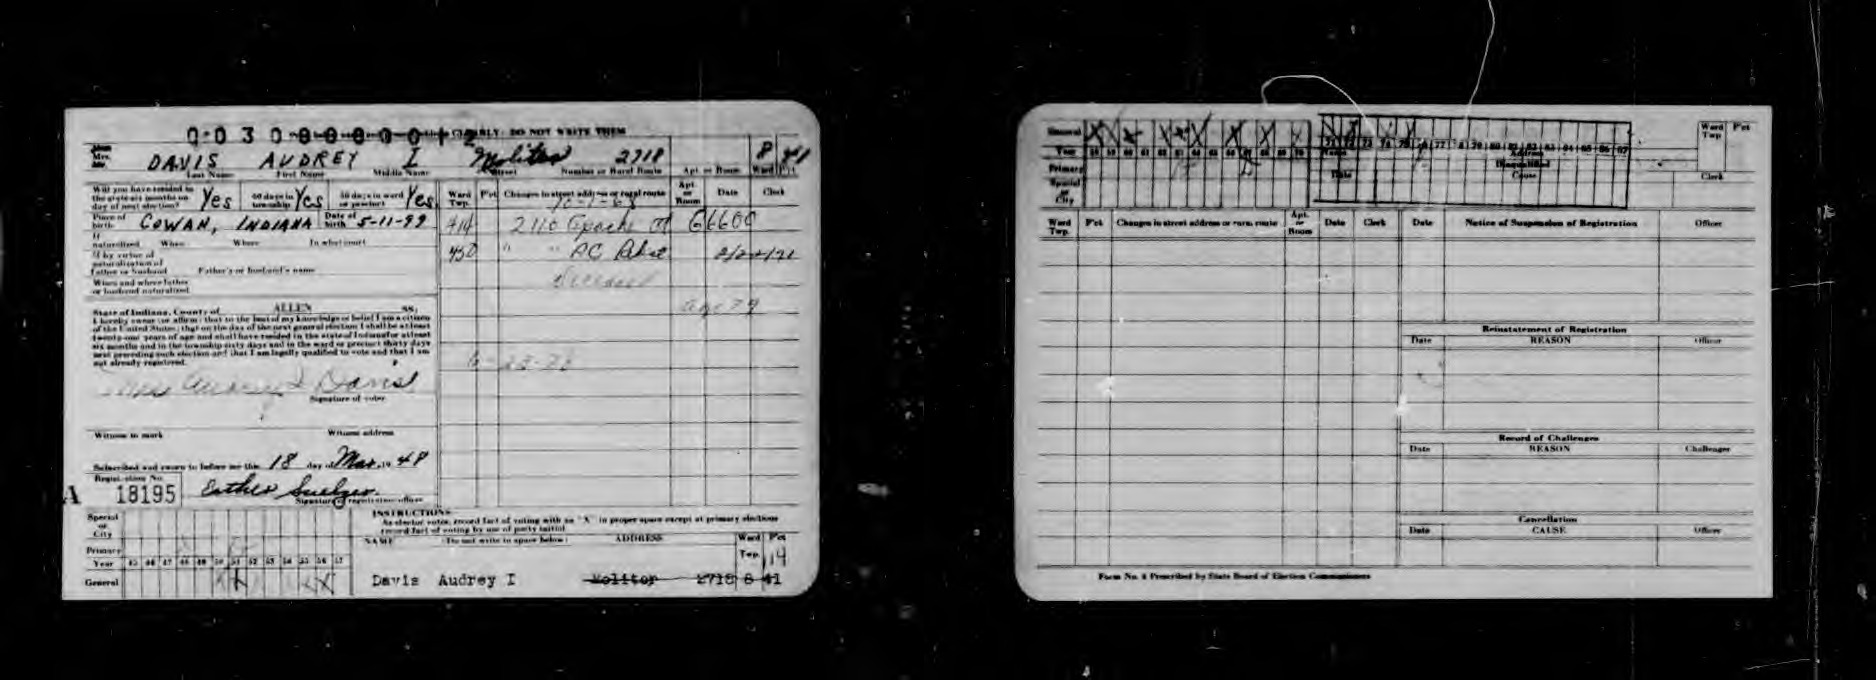 CLEARLY: DO NOT WRITE THEM
Mrs. DAVIS AUDREY I Molitor 2718 8 41
Last Name First Name Middle Name Street Number or Rural Route Apt. or Room Ward Pct
Will you have resided in the state six months on day of next election? Yes 60 days in township Yes 30 days in ward or precinct Yes
Place of birth COWAN, INDIANA Date of birth 5-11-99
If naturalized When Where In what court
If by virtue of naturalization of Father or husband Father's or husband's name
When and where father or husband naturalized
State of Indiana, County of ALLEN ss:
I hereby swear (or affirm) that to the best of my knowledge or belief I am a citizen
of the United States; that on the day of the next general election I shall be at least
twenty-one years of age and shall have resided in the state of Indiana for at least
six months and in the township sixty days and in the ward or precinct thirty days
next preceding such election and that I am legally qualified to vote and that I am
not already registered.
Mrs Audrey I Davis
Signature of voter
Witness to mark Witness address
Subscribed and sworn to before me this 18 day of Mar. 19 48
Registration No.
A 18195 Esther
Signature of registration officer
Ward Twp. P'ct Changes in street address or rural route Apt. or Room Date Clerk
10-7-68
414 2110 Ct G6600
450 " " PC 2/22/71
Deceased
age 79
Special or City
Primary
Year 45 46 47 48 49 50 51 52 53 54 55 56 57
General
INSTRUCTIONS
As elector votes, record fact of voting with an "X" in proper space except at primary elections
record fact of voting by use of party initial.
NAME (Do not write in space below) ADDRESS Ward Twp. Pct
19
Davis Audrey I Molitor 2718 8 41
General
Year 58 59 60 61 62 63 64 65 66 67 68 69 70 71 72 73 74 75 76 77 78 79 80 81 82 83 84 85 86 87
Primary
Special or City
Name Address
Disqualified
Date Cause
Ward Twp P'ct
Clerk
Ward Twp. P'ct Changes in street address or rural route Apt. or Room Date Clerk Date Notice of Suspension of Registration Officer
Reinstatement of Registration
Date REASON Officer
Record of Challenges
Date REASON Challenger
Cancellation
Date CAUSE Officer
Form No. 4 Prescribed by State Board of Election Commissioners